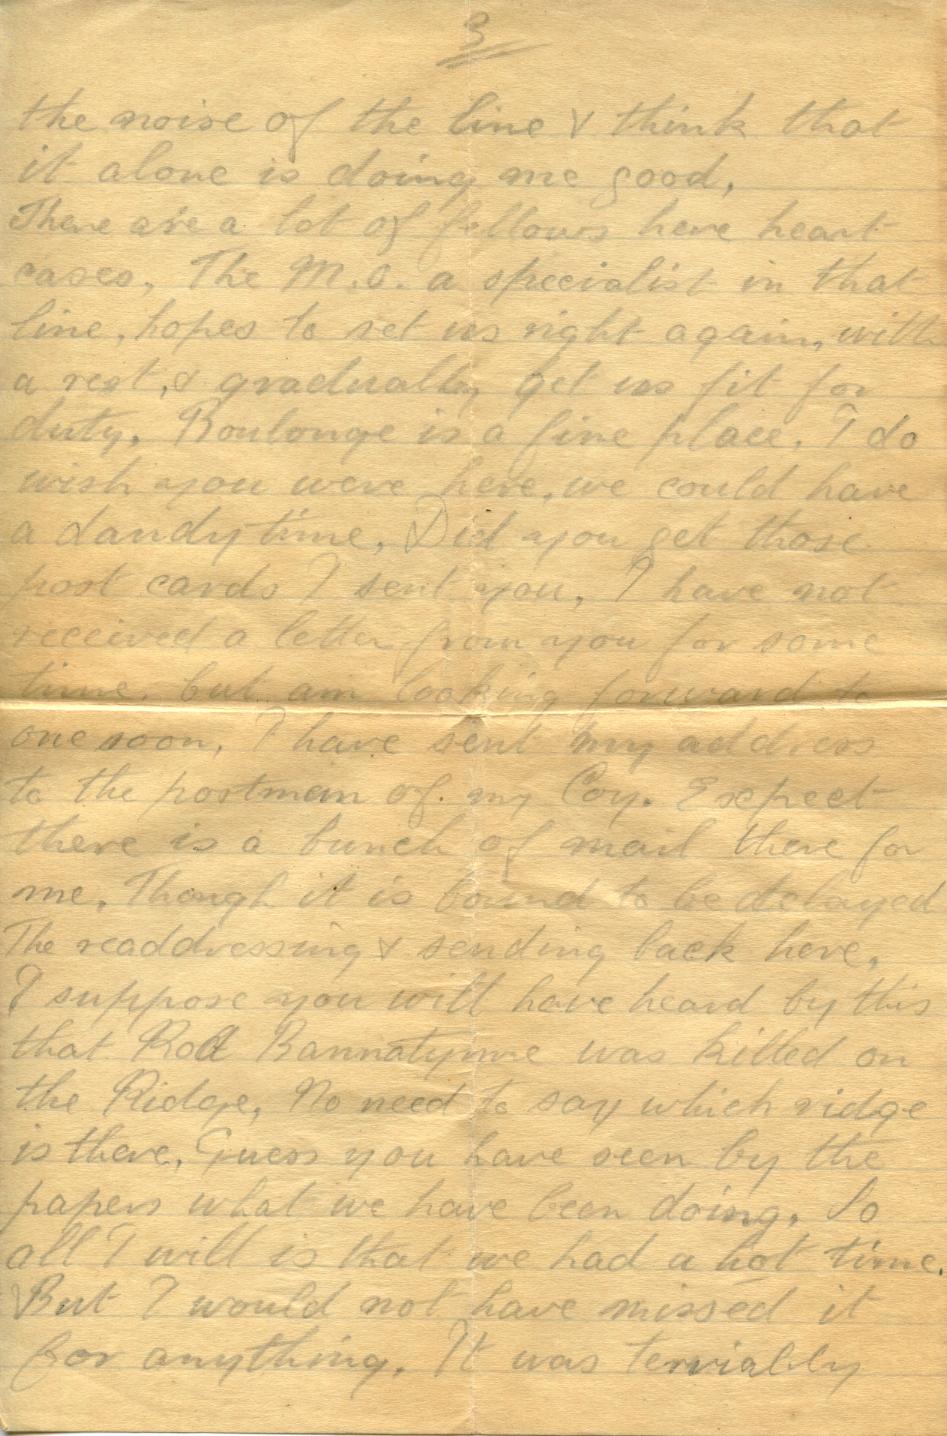 3
the noise of the line & think that
it alone is doing me good,
There are a lot of fellows here heart
cases, The M.O. a specialist in that
line, hopes to set us right again, with
a rest, & gradually get us fit for
duty, Boulonge is a fine place, I do
wish you were here, we could have
a dandy time, Did you get those
post cards I sent you, I have not
received a letter from you for some
time, but am looking forward to
one soon, I have sent my address
to the postman of my Coy. Expect
there is a bunch of mail there for
me, Though it is bound to be delayed
The readdressing & sending back here,
I suppose you will have heard by this
that Rod Bannatynne was killed on
the Ridge, No need to say which ridge
is there, Guess you have seen by the
papers what we have been doing, So
all I will is that we had a hot time.
But I would not have missed it
for anything, It was terriably